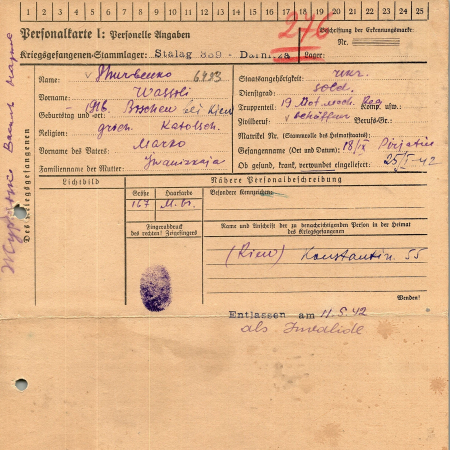 1 2 3 4 5 6 7 8 9 10 11 12 13 14 15 16 17 18 19 20 21 22 23 24 25
Personalkarte I: Personelle Angaben
276
Beschriftung der Erkennungsmarke
Nr.
Kriegsgefangenen-Stammlager: Stalag 339 - Darniza
Lager:
Des Kriegsgefangenen
Name:
Vorname: Wassoli
Geburtstag und -ort: bei Kiew
Religion:
Vorname des Vaters: Marko
Familienname der Mutter:
Staatsangehörigkeit: ukr.
Dienstgrad: sold.
Truppenteil: 19 Komp. usw.:
Zivilberuf: Berufs-Gr.:
Matrikel Nr. (Stammrolle des Heimatstaates):
Gefangennahme (Ort und Datum): 18/IX Pirjatin
Ob gesund, krank, verwundet eingeliefert: 25/I-42
Lichtbild
Nähere Personalbeschreibung
Größe
Haarfarbe
Besondere Kennzeichen:
167
Fingerabdruck
des rechten! Zeigefingers
Name und Anschrift der zu benachrichtigenden Person in der Heimat
des Kriegsgefangenen
(Kiew) Konstantin. 55
Wenden!
Entlassen am 11.5.42
als Invalide